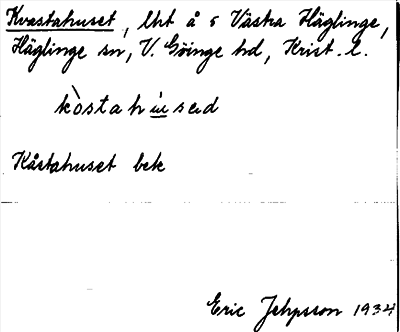 Kvastahuset, lht å s Västra Häglinge,
Häglinge sn, V. Göinge hd, Krist. l.
kòstahu̲sed
Kåstahuset bek
Eric Jehpsson 1934